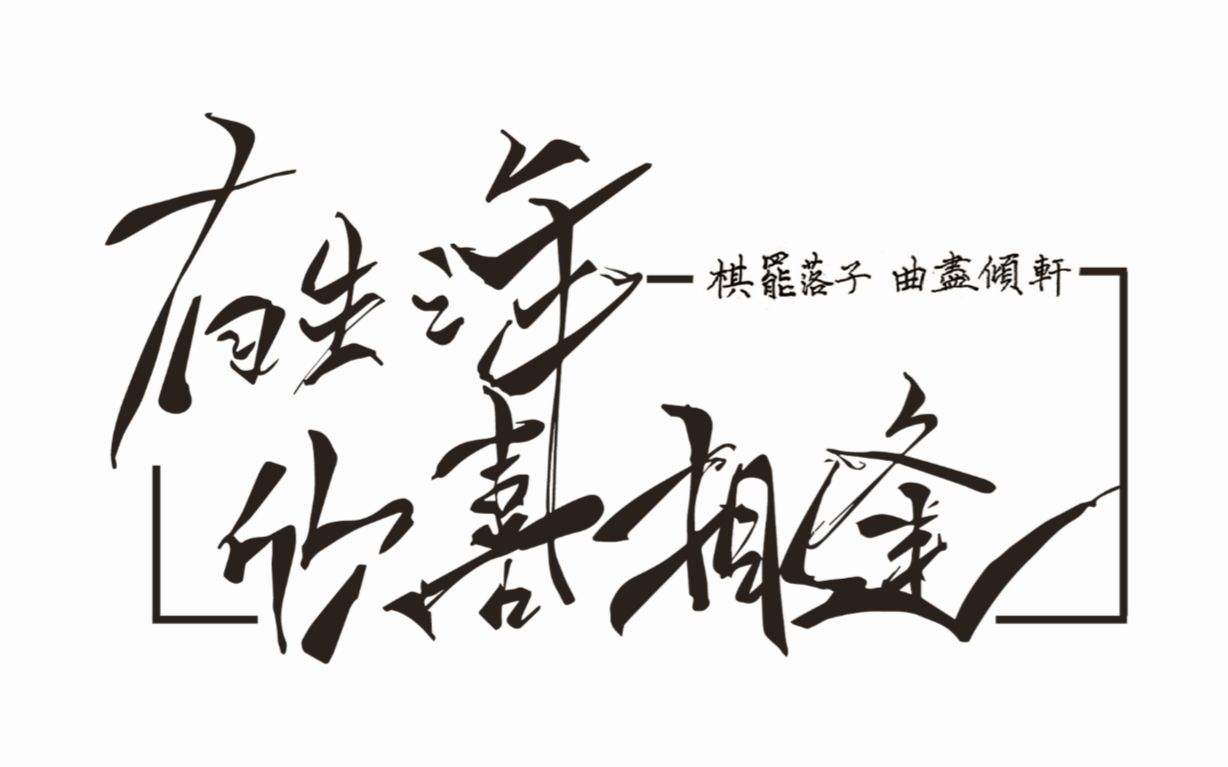 有生之年
棋罷落子 曲盡傾軒
欣喜相逢